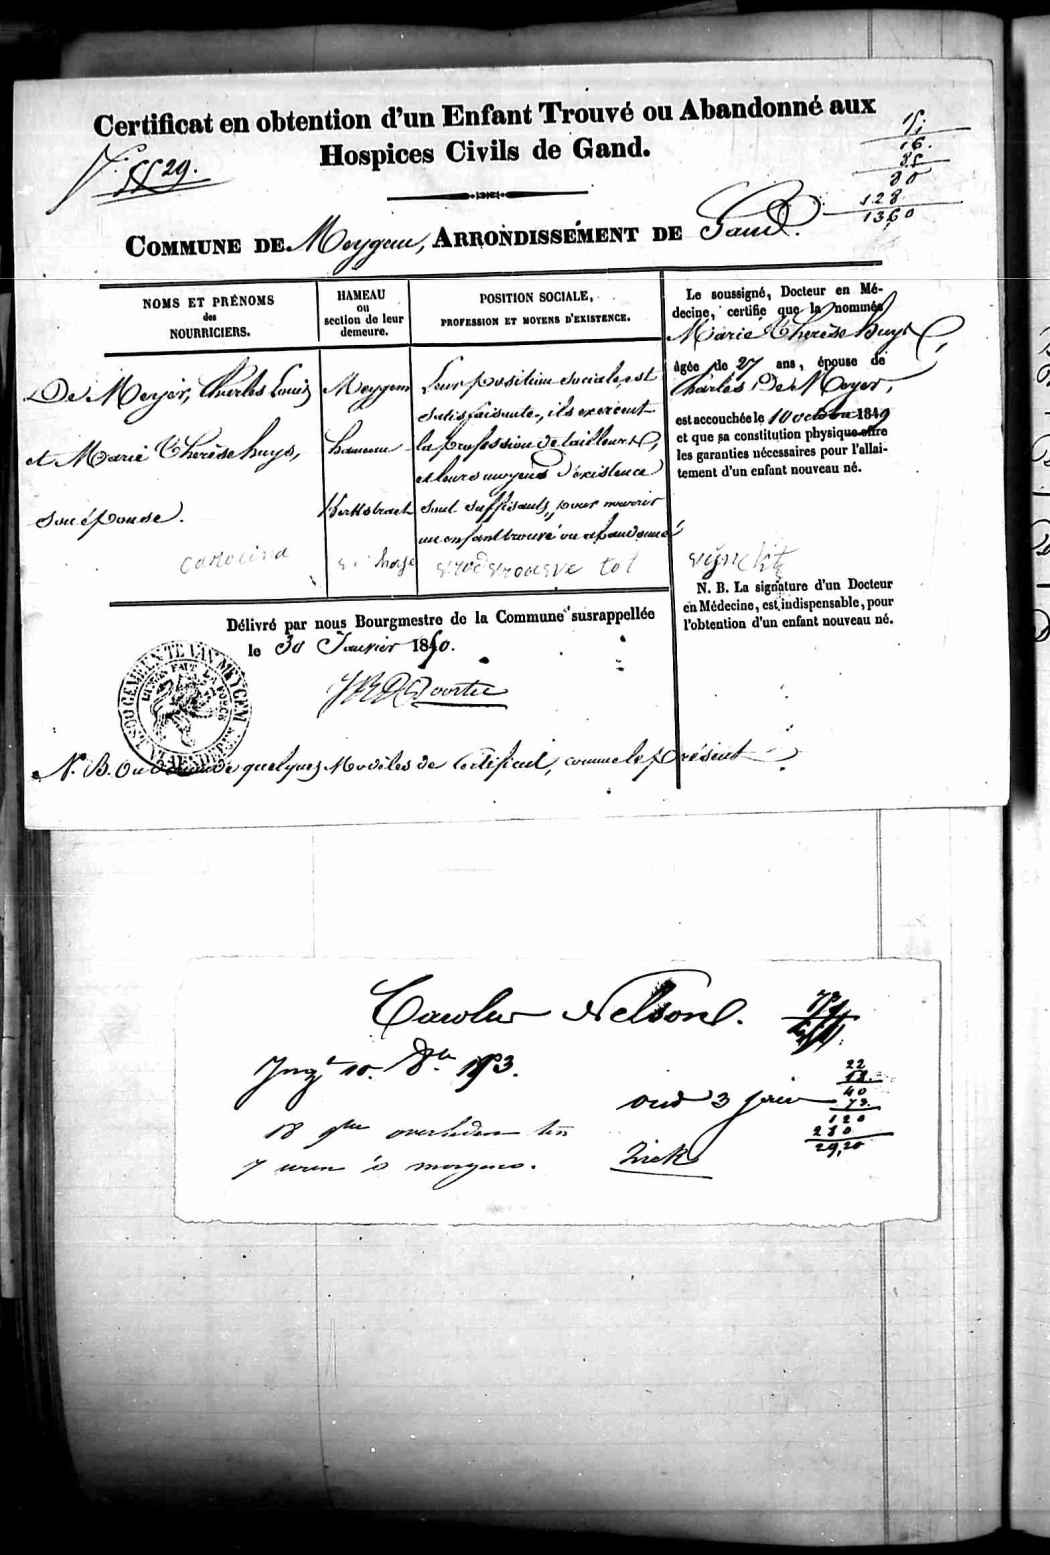 Certificat en obtention d'un Enfant Trouvé ou Abandonné aux
Hospices Civils de Gand.
5529.
16.
30
128
1360
COMMUNE DE Meygem, ARRONDISSEMENT DE Gand.
NOMS ET PRÉNOMS
des
NOURRICIERS.
HAMEAU
ou
section de leur
demeure.
POSITION SOCIALE,
PROFESSION ET MOYENS D'EXISTENCE.
De Meyer, Charles Louis
et Marie Thérèse huys,
son épouse.
Carolina
Meygem
hameau
Leur position sociale, est
satisfaisante, ils exercent
la profession de tailleurs,
et leurs moyens d'existence
sont suffisants, pour nourrir
un enfant trouvé ou abandonné
Le soussigné, Docteur en Mé-
decine, certifie que la nommée
Marie Thérèse huys
âgée de 27 ans, épouse de
Charles De Meyer,
est accouchée le 10 octobre 1849
et que sa constitution physique offre
les garanties nécessaires pour l'allai-
tement d'un enfant nouveau né.
N. B. La signature d'un Docteur
en Médecine, est indispensable, pour
l'obtention d'un enfant nouveau né.
Délivré par nous Bourgmestre de la Commune susrappellée
le 30 Janvier 1850.
N. B. On demande quelques Modèles de Certificat, comme le présent
Nelson.
22
18.
40
73.
120
280
29,20
10. 8br 1853.
oud 3 jaer
18 overleden
7 uren 's morgens.
Ziek